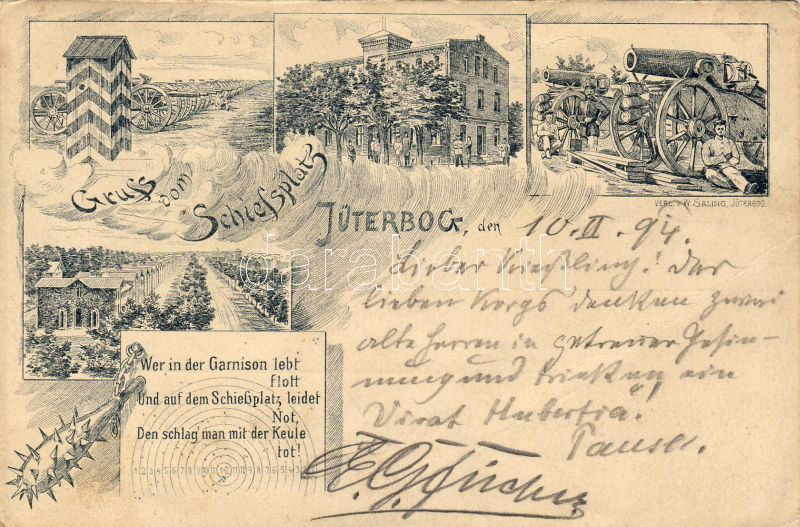 Gruss vom Schießplatz
VERL. v. W. SALING, JÜTERBOG.
JÜTERBOG, den 10. II. 94.
Lieber Kiessling! Des
lieben Korps denken zwei
alte Herren in getreuer Gesin-
nung und trinken ein
Vivat Hubertia!
Wer in der Garnison lebt
flott
Und auf dem Schießplatz leidet
Not,
Den schlag' man mit der Keule
tot!
1 2 3 4 5 6 7 8 9 10 11 12 11 10 9 8 7 6 5 4 3
darabanth